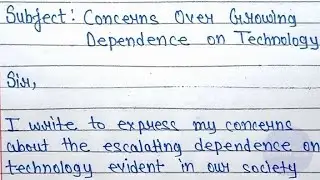 Subject: Concerns Over Growing
Dependence on Technology
Sir,
I write to express my concerns
about the escalating dependence on
technology evident in our society